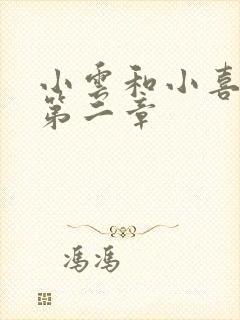 小雲和小喜
第二章
馮馮